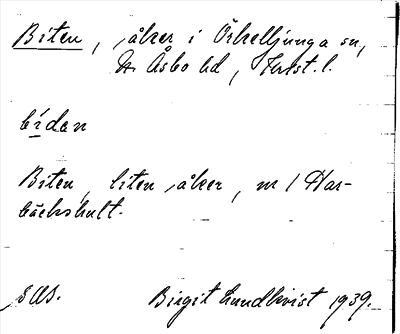 Biten, åker i Örkelljunga sn,
N. Åsbo hd, Krist. l.
bidan
Biten, liten åker, nr 1 Har-
bäckshult.
SOS. Birgit Lundkvist 1939.